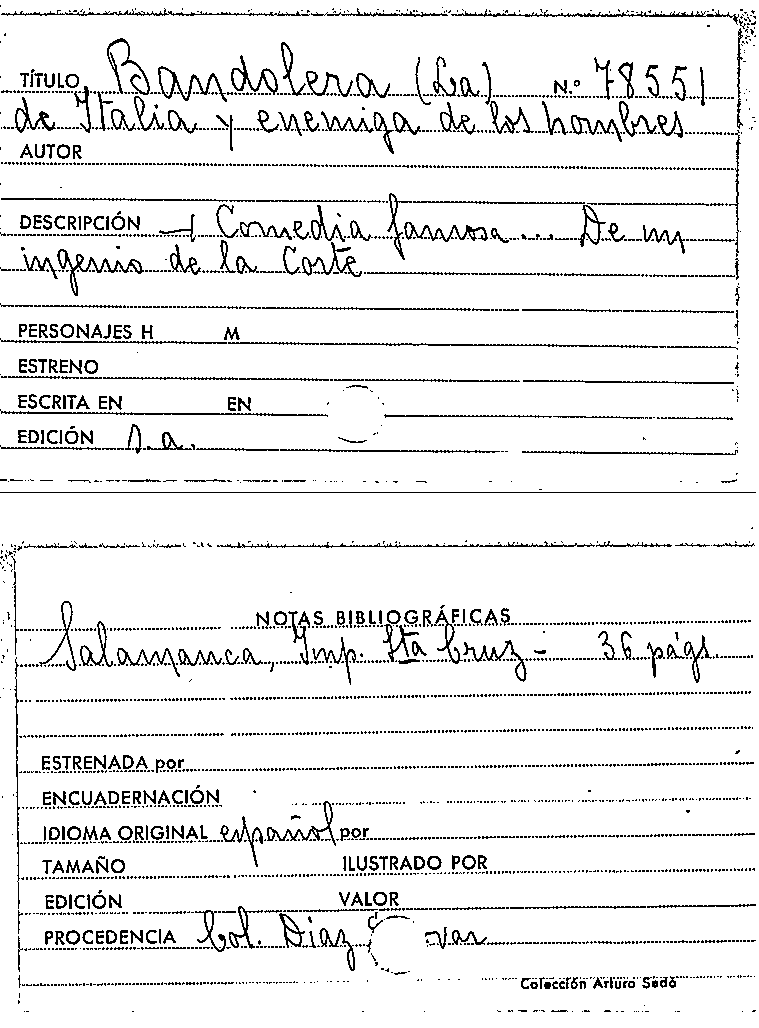 TÍTULO Bandolera (La) N.º 78551
de Italia y enemiga de los hombres
AUTOR
DESCRIPCIÓN Comedia famosa... De un
ingenio de la Corte
PERSONAJES H M
ESTRENO
ESCRITA EN EN
EDICIÓN s.a.
NOTAS BIBLIOGRÁFICAS
Salamanca, Imp. Sta Cruz - 36 págs.
ESTRENADA por
ENCUADERNACIÓN
IDIOMA ORIGINAL español por
TAMAÑO ILUSTRADO POR
EDICIÓN VALOR
PROCEDENCIA Col. Díaz
Colección Arturo Sedó